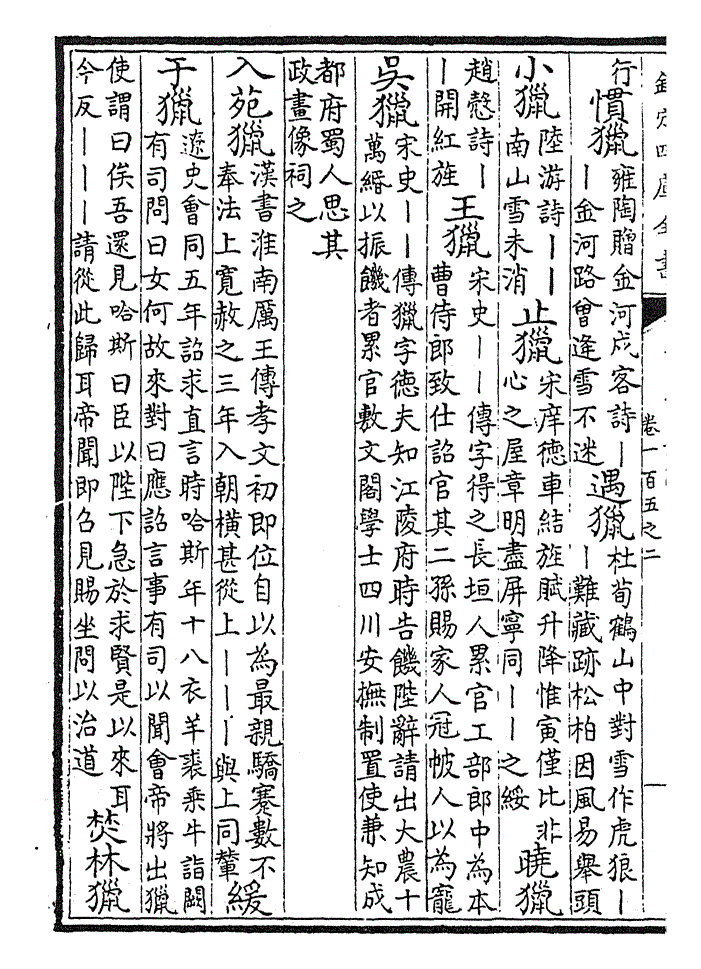 欽定四庫全書
卷一百五之二
行
慣獵
雍陶贈金河戍客詩丨
丨金河路曾逢雪不迷
遇獵
杜荀鶴山中對雪作虎狼丨
丨難藏跡松柏因風易舉頭
小獵
陸游詩丨丨
南山雪未消
止獵
宋庠德車結旌賦升降惟寅僅比非
心之屋章明盡屏寧同丨丨之綏
曉獵
趙嘏詩丨
丨開紅旌
王獵
宋史丨丨傳字得之長垣人累官工部郎中為本
曹侍郎致仕詔官其二孫賜家人冠帔人以為寵
吳獵
宋史丨丨傳獵字德夫知江陵府時告饑陛辭請出大農十
萬緡以振饑者累官敷文閣學士四川安撫制置使兼知成
都府蜀人思其
政畫像祠之
入苑獵
漢書淮南厲王傳孝文初即位自以為最親驕蹇數不
奉法上寬赦之三年入朝橫甚從上丨丨丨與上同輦
緩
于獵
遼史會同五年詔求直言時哈斯年十八衣羊裘乘牛詣闕
有司問曰女何故來對曰應詔言事有司以聞會帝將出獵
使謂曰俟吾還見哈斯曰臣以陛下急於求賢是以來耳
今反丨丨丨請從此歸耳帝聞即召見賜坐問以治道
焚林獵